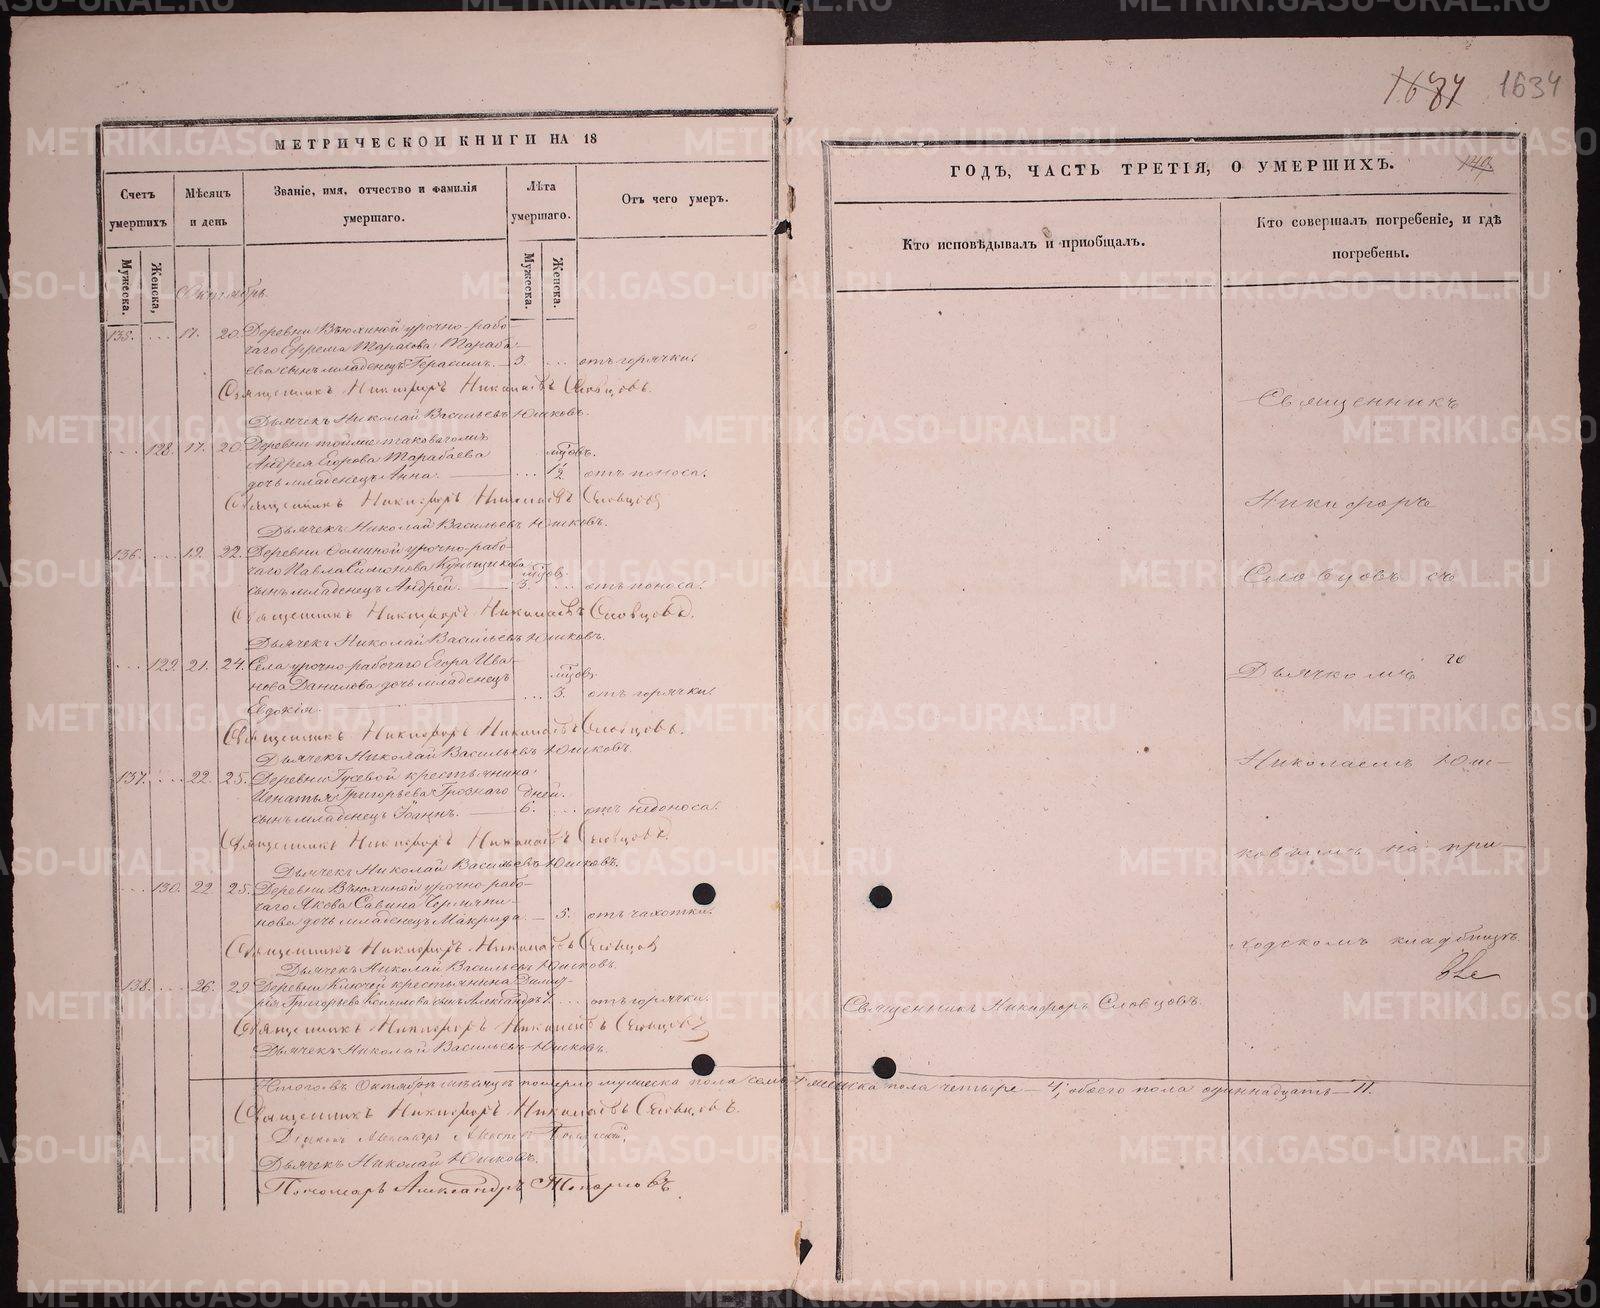 1681 1634
МЕТРИЧЕСКОЙ КНИГИ НА 18
Счетъ умершихъ
Мужеска.
Женска,
Мѣсяцъ и день
Званіе, имя, отчество и фамилія умершаго.
Лѣта умершаго.
Мужеска.
Женска.
Отъ чего умеръ.
Октябрь.
135. ... 17. 20. Деревни Вьюхиной урочно-рабо-
чаго Ефрема Тарасова Тараба-
ева сынъ младенецъ Герасимъ. — 3. ... отъ горячки.
Священникъ Никифоръ Николаевъ Словцовъ.
Дьячекъ Николай Васильевъ Юшковъ.
... 128. 17. 20. Деревни тойже таковагожъ
Андрея Егорова Тарабаева мѣсцовъ.
дочь младенецъ Анна. — ... 1½ отъ поноса.
Священникъ Никифоръ Николаевъ Словцовъ
Дьячекъ Николай Васильевъ Юшковъ.
136. ... 19. 22. Деревни урочно-рабо-
чаго Павла Симонова
сынъ младенецъ Андрей. — 3. ... отъ поноса.
Священникъ Никифоръ Николаевъ Словцовъ.
Дьячекъ Николай Васильевъ Юшковъ.
... 129. 21. 24. Села урочно-рабочаго Егора Ива-
нова Данилова дочь младенецъ мѣсцовъ
Евдокія. ... 3. отъ горячки.
Священникъ Никифоръ Николаевъ Словцовъ.
Дьячекъ Николай Васильевъ Юшковъ.
137. ... 22. 25. Деревни Гусевой крестьянина
Игнатья Григорьева Грознаго дней.
сынъ младенецъ Іоаннъ. — 6. ... отъ недоноса.
Священникъ Никифоръ Николаевъ Словцовъ.
Дьячекъ Николай Васильевъ Юшковъ.
... 130. 22. 25. Деревни Вьюхиной урочно-рабо-
чаго Якова Савина
нова дочь младенецъ Макрида. — 5. отъ чахотки.
Священникъ Никифоръ Николаевъ Словцовъ
Дьячекъ Николай Васильевъ Юшковъ.
138. ... 26. 29. Деревни Ключей крестьянина Димит-
рія Григорьева Копылова сынъ Александръ ... отъ горячки.
Священникъ Никифоръ Николаевъ Словцовъ
Дьячекъ Николай Васильевъ Юшковъ.
Итого въ Октябрѣ мѣсяцѣ померло мужеска пола семь 7, женска пола четыре — 4, обоего пола одиннадцать — 11.
Священникъ Никифоръ Николаевъ Словцовъ.
Діаконъ Александръ
Дьячекъ Николай Юшковъ.
Пономарь Александръ Топорковъ
ГОДЪ, ЧАСТЬ ТРЕТІЯ, О УМЕРШИХЪ. 140.
Кто исповѣдывалъ и приобщалъ.
Кто совершалъ погребеніе, и гдѣ погребены.
Священникъ
Никифоръ
Словцовъ съ
Дьячкомъ
Николаемъ Юш-
ковымъ на при-
ходскомъ кладбищѣ.
Священникъ Никифоръ Словцовъ.
METRIKI.GASO-URAL.RU